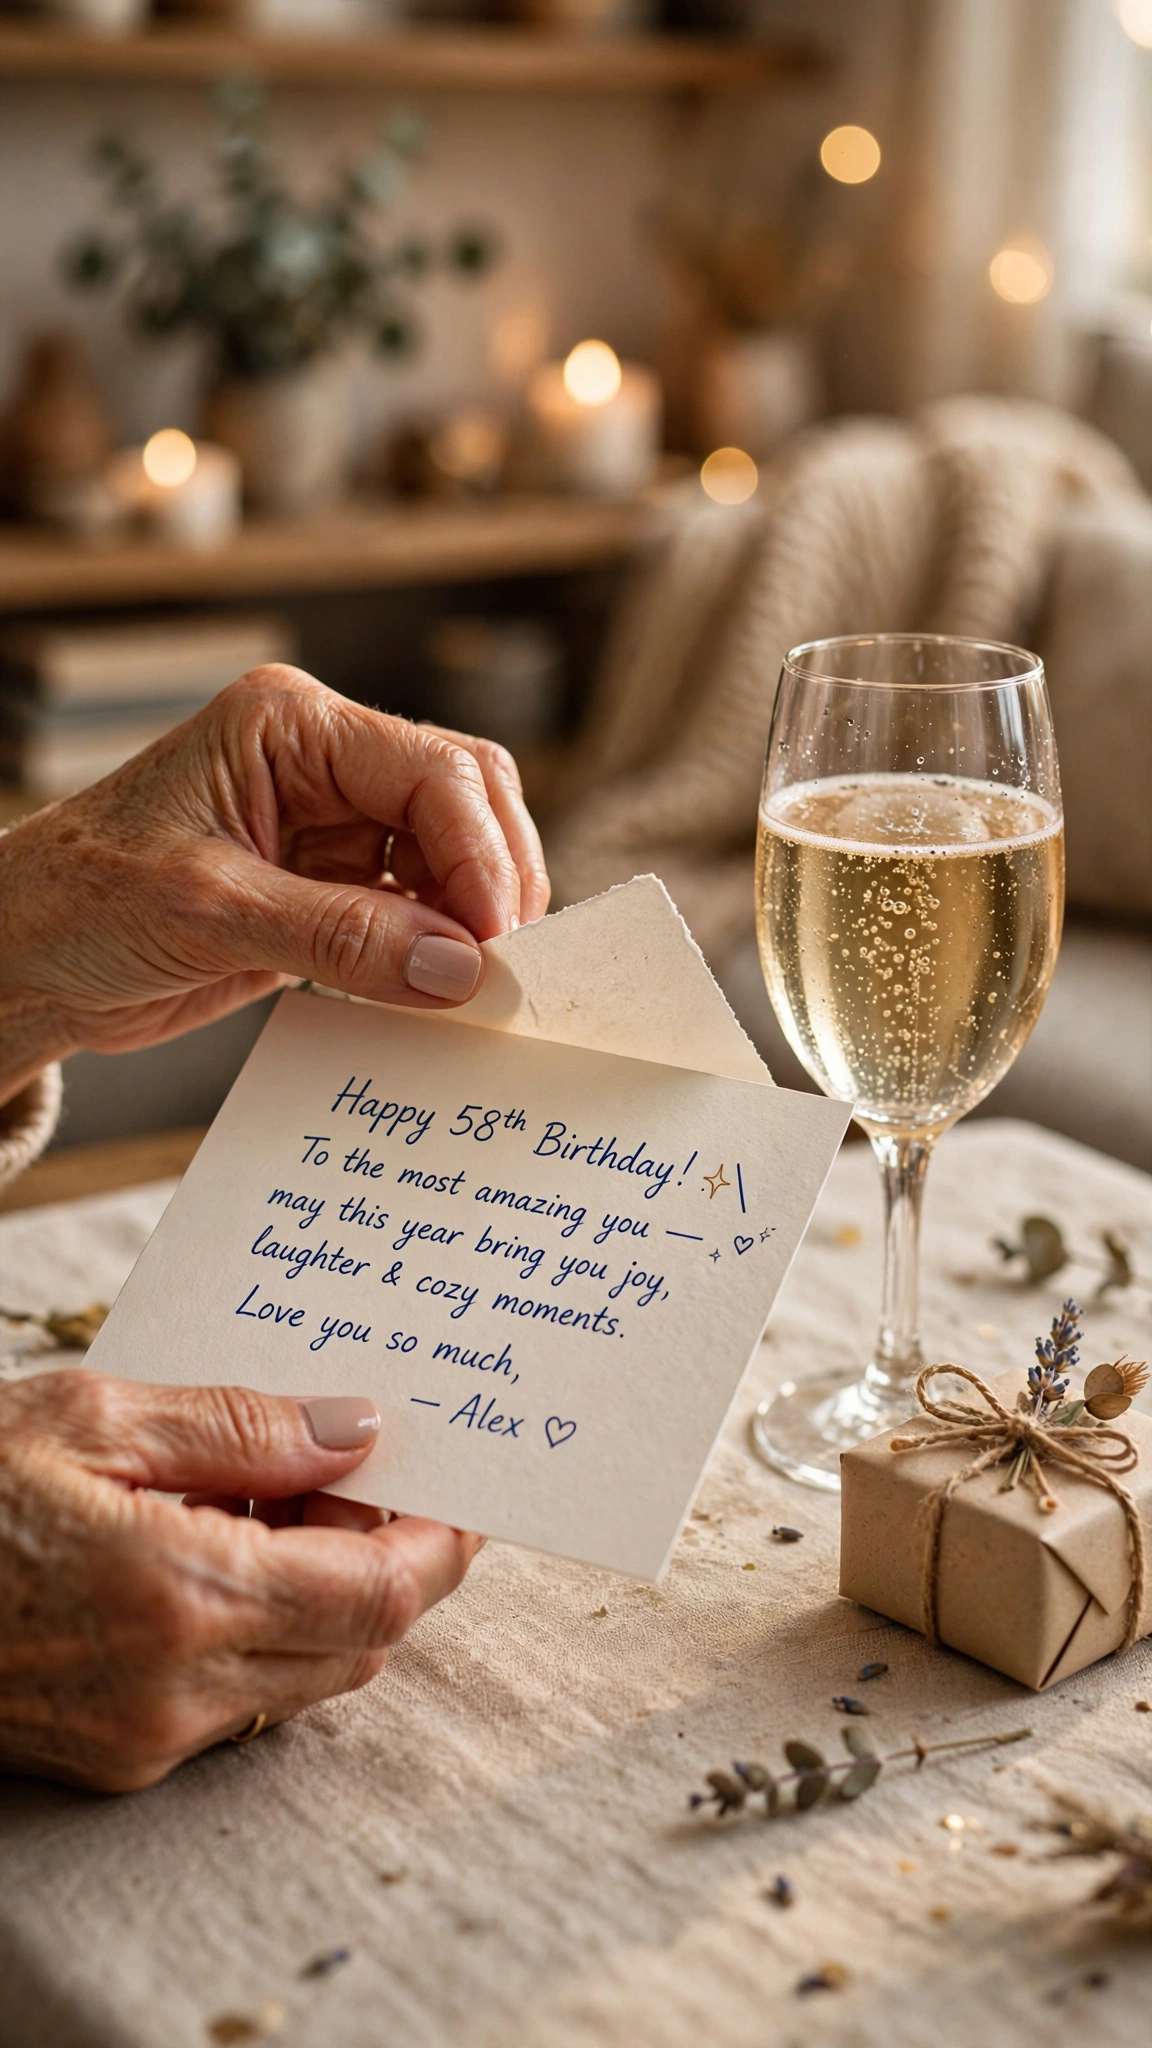 Happy 58th Birthday!
To the most amazing you —
may this year bring you joy,
laughter & cozy moments.
Love you so much,
— Alex ♡